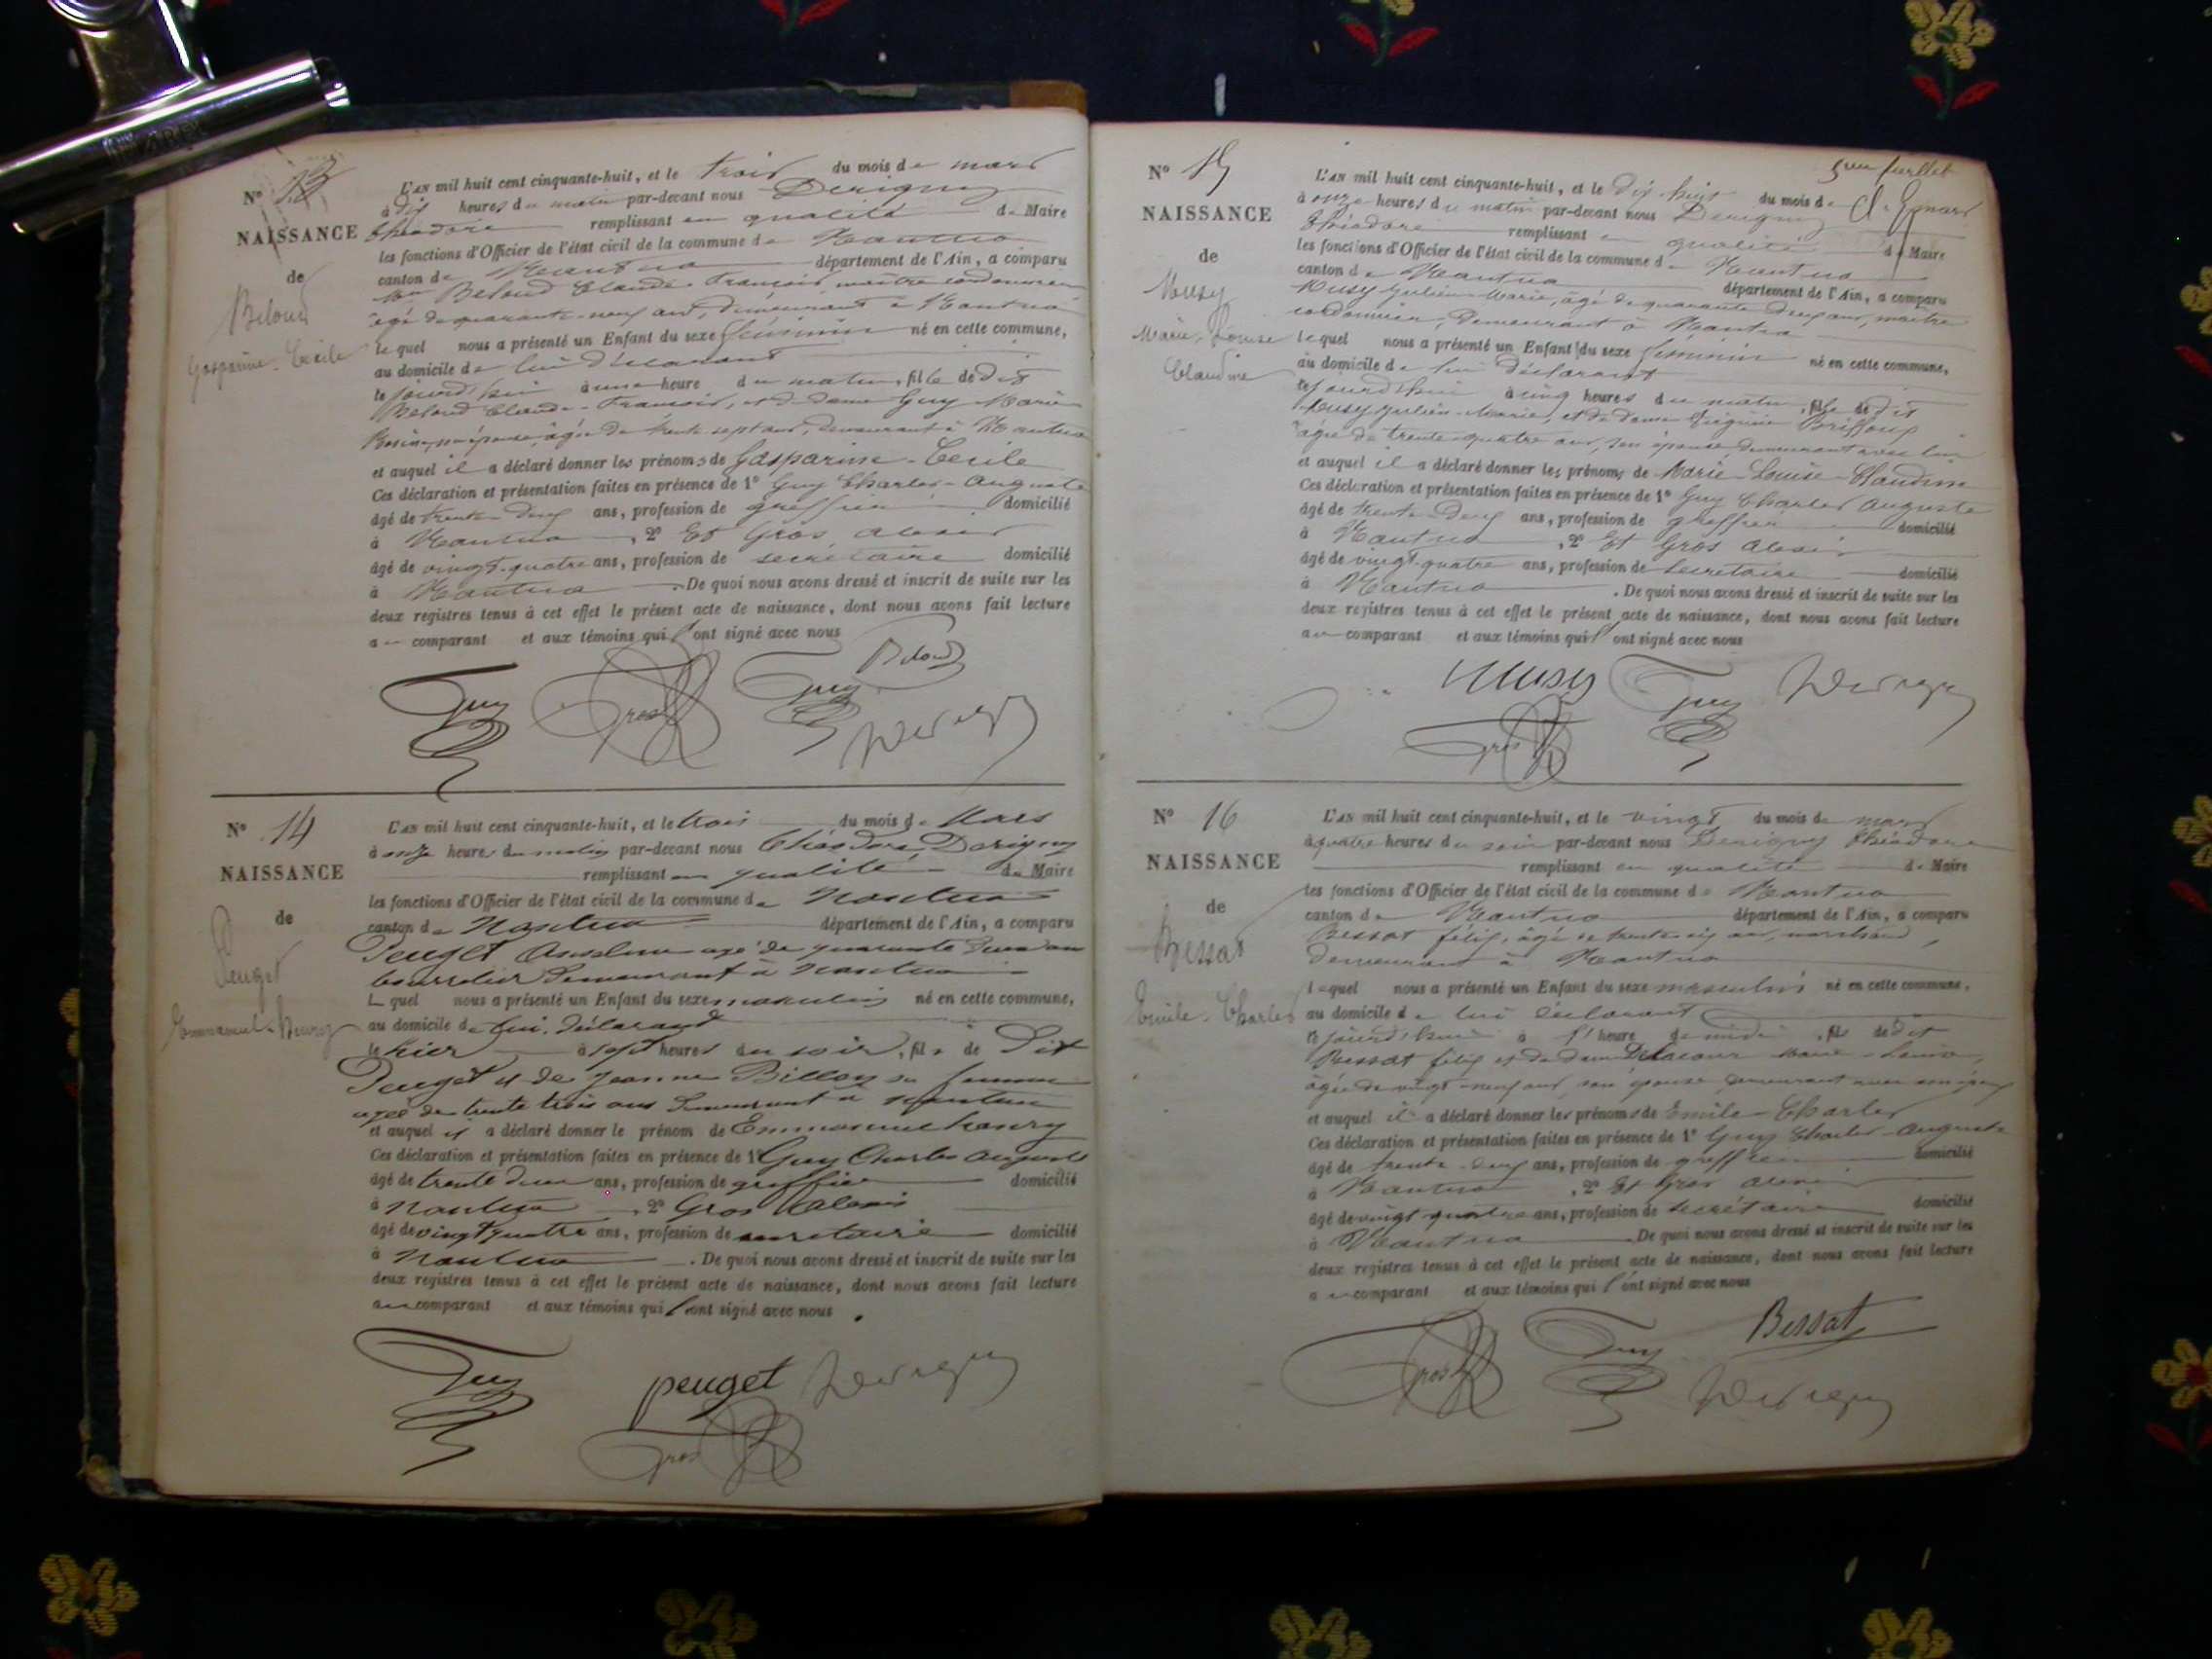 N° 13
L'AN mil huit cent cinquante-huit, et le trois du mois de mars
à dix heures du matin par-devant nous Derigny
NAISSANCE
Théodore remplissant en qualité de Maire
les fonctions d'Officier de l'état civil de la commune de Nantua
de
canton de Nantua département de l'Ain, a comparu
Beloud Claude-François, maître cordonnier
Beloud
âgé de quarante-neuf ans, demeurant à Nantua
Gasparine-Cécile
lequel nous a présenté un Enfant du sexe féminin né en cette commune,
au domicile de lui déclarant
le jourd'hui à une heure du matin, fille de dit
Beloud Claude-François, et de dame Guy Marie
Rosine, son épouse, âgée de trente sept ans, demeurant à Nantua
et auquel il a déclaré donner les prénoms de Gasparine-Cécile
Ces déclaration et présentation faites en présence de 1° Guy Charles-Auguste
âgé de trente-deux ans, profession de greffier domicilié
à Nantua, 2° Et Gros Alexis
âgé de vingt-quatre ans, profession de secrétaire domicilié
à Nantua. De quoi nous avons dressé et inscrit de suite sur les
deux registres tenus à cet effet le présent acte de naissance, dont nous avons fait lecture
au comparant et aux témoins qui l'ont signé avec nous
Beloud
Guy Gros Guy
Derigny
N° 14
L'AN mil huit cent cinquante-huit, et le trois du mois de Mars
à onze heures du matin par-devant nous Théodore Derigny
NAISSANCE
remplissant en qualité de Maire
les fonctions d'Officier de l'état civil de la commune de Nantua
de
canton de Nantua département de l'Ain, a comparu
Peuget Anselme agé de quarante deux ans
Peuget
bourrelier demeurant à Nantua
Lequel nous a présenté un Enfant du sexe masculin né en cette commune,
Emmanuel-Henry
au domicile de lui déclarant
le hier à sept heures du soir, fils de dit
Peuget et de Jeanne Billoy sa femme
agée de trente trois ans demeurant à Nantua
et auquel il a déclaré donner le prénom de Emmanuel henry
Ces déclaration et présentation faites en présence de 1° Guy Charles Auguste
âgé de trente deux ans, profession de greffier domicilié
à Nantua, 2° Gros Alexis
âgé de vingt quatre ans, profession de secretaire domicilié
à Nantua. De quoi nous avons dressé et inscrit de suite sur les
deux registres tenus à cet effet le présent acte de naissance, dont nous avons fait lecture
au comparant et aux témoins qui l'ont signé avec nous.
Guy peuget Derigny
Gros
5me feuillet
N° 15
L'AN mil huit cent cinquante-huit, et le dix-huit du mois de mars
à onze heures du matin par-devant nous Derigny
NAISSANCE
Théodore remplissant en qualité de Maire
les fonctions d'Officier de l'état civil de la commune de Nantua
de
canton de Nantua département de l'Ain, a comparu
Musy Julien-Marie, âgé de quarante deux ans, maître
Musy
cordonnier, demeurant à Nantua
Marie-Louise
lequel nous a présenté un Enfant du sexe féminin né en cette commune,
Claudine
au domicile de lui déclarant
le jourd'hui à cinq heures du matin, fille de dit
Musy Julien-Marie, et de dame Virginie
âgée de trente-quatre ans, son épouse, demeurant avec lui
et auquel il a déclaré donner les prénoms de Marie-Louise-Claudine
Ces déclaration et présentation faites en présence de 1° Guy Charles Auguste
âgé de trente-deux ans, profession de greffier domicilié
à Nantua, 2° Et Gros Alexis
âgé de vingt-quatre ans, profession de Secrétaire domicilié
à Nantua. De quoi nous avons dressé et inscrit de suite sur les
deux registres tenus à cet effet le présent acte de naissance, dont nous avons fait lecture
au comparant et aux témoins qui l'ont signé avec nous
Musy Guy Derigny
Gros
N° 16
L'AN mil huit cent cinquante-huit, et le vingt du mois de mars
à quatre heures du soir par-devant nous Derigny Théodore
NAISSANCE
remplissant en qualité de Maire
les fonctions d'Officier de l'état civil de la commune de Nantua
de
canton de Nantua département de l'Ain, a comparu
Bessat félix, âgé de trente-six ans, marchand,
Bessat
demeurant à Nantua
lequel nous a présenté un Enfant du sexe masculin né en cette commune,
Emile-Charles
au domicile de lui déclarant
le jourd'hui à l'heure de midi, fils de dit
Bessat félix et de dame Delacour Marie-Louise,
âgée de vingt-neuf ans, son épouse, demeurant avec son époux
et auquel il a déclaré donner les prénoms de Emile-Charles
Ces déclaration et présentation faites en présence de 1° Guy Charles-Auguste
âgé de trente-deux ans, profession de greffier domicilié
à Nantua, 2° Et Gros Alexis
âgé de vingt-quatre ans, profession de Secrétaire domicilié
à Nantua. De quoi nous avons dressé et inscrit de suite sur les
deux registres tenus à cet effet le présent acte de naissance, dont nous avons fait lecture
au comparant et aux témoins qui l'ont signé avec nous
Gros Guy Bessat
Derigny